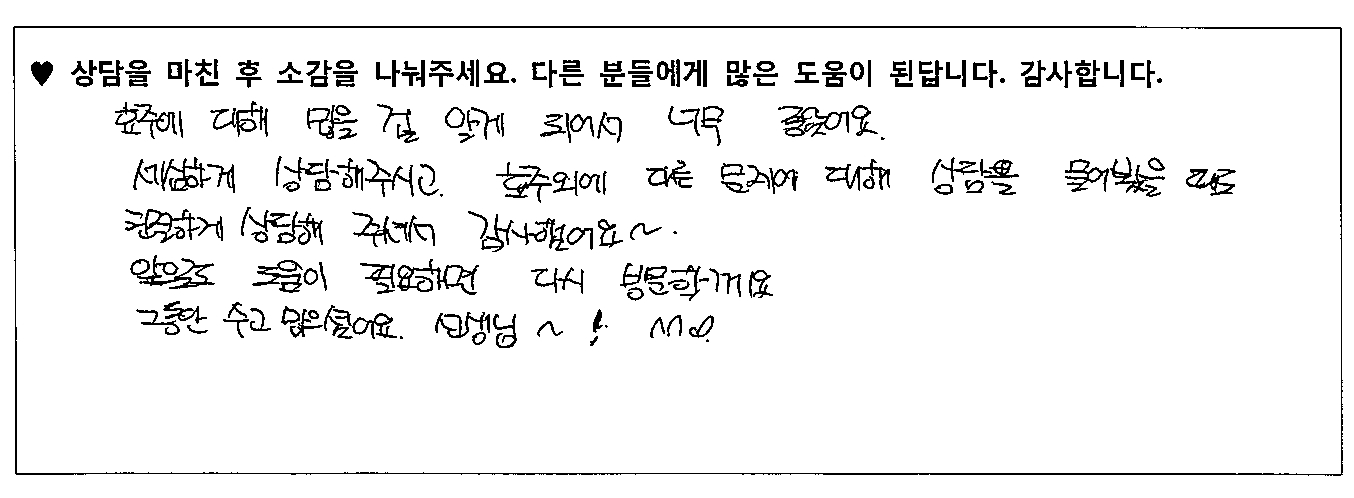 ♥ 상담을 마친 후 소감을 나눠주세요. 다른 분들에게 많은 도움이 된답니다. 감사합니다.
호주에 대해 많을 걸 알게 되어서 너무 좋았어요.
세심하게 상담해주시고. 호주외에 다른 문제에 대해 상담을 물어봤을 때도
친절하게 상담해 주셔서 감사했어요~.
앞으로도 도움이 필요하면 다시 방문할게요
그동안 수고 많으셨어요. 선생님 ~ !